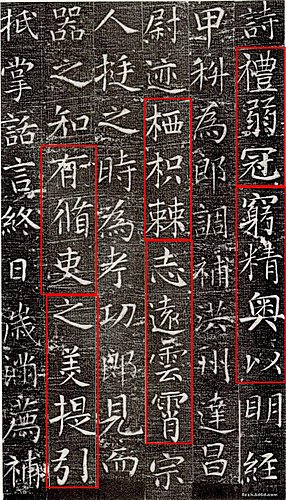 詩禮弱冠窮精奥以明經
甲科為郎調補洪州建昌
尉迹栖枳棘志遠雲霄宗
人挺之時為考功郎見而
器之知有脩吏之美提引
抵掌話言終日歲滿薦補